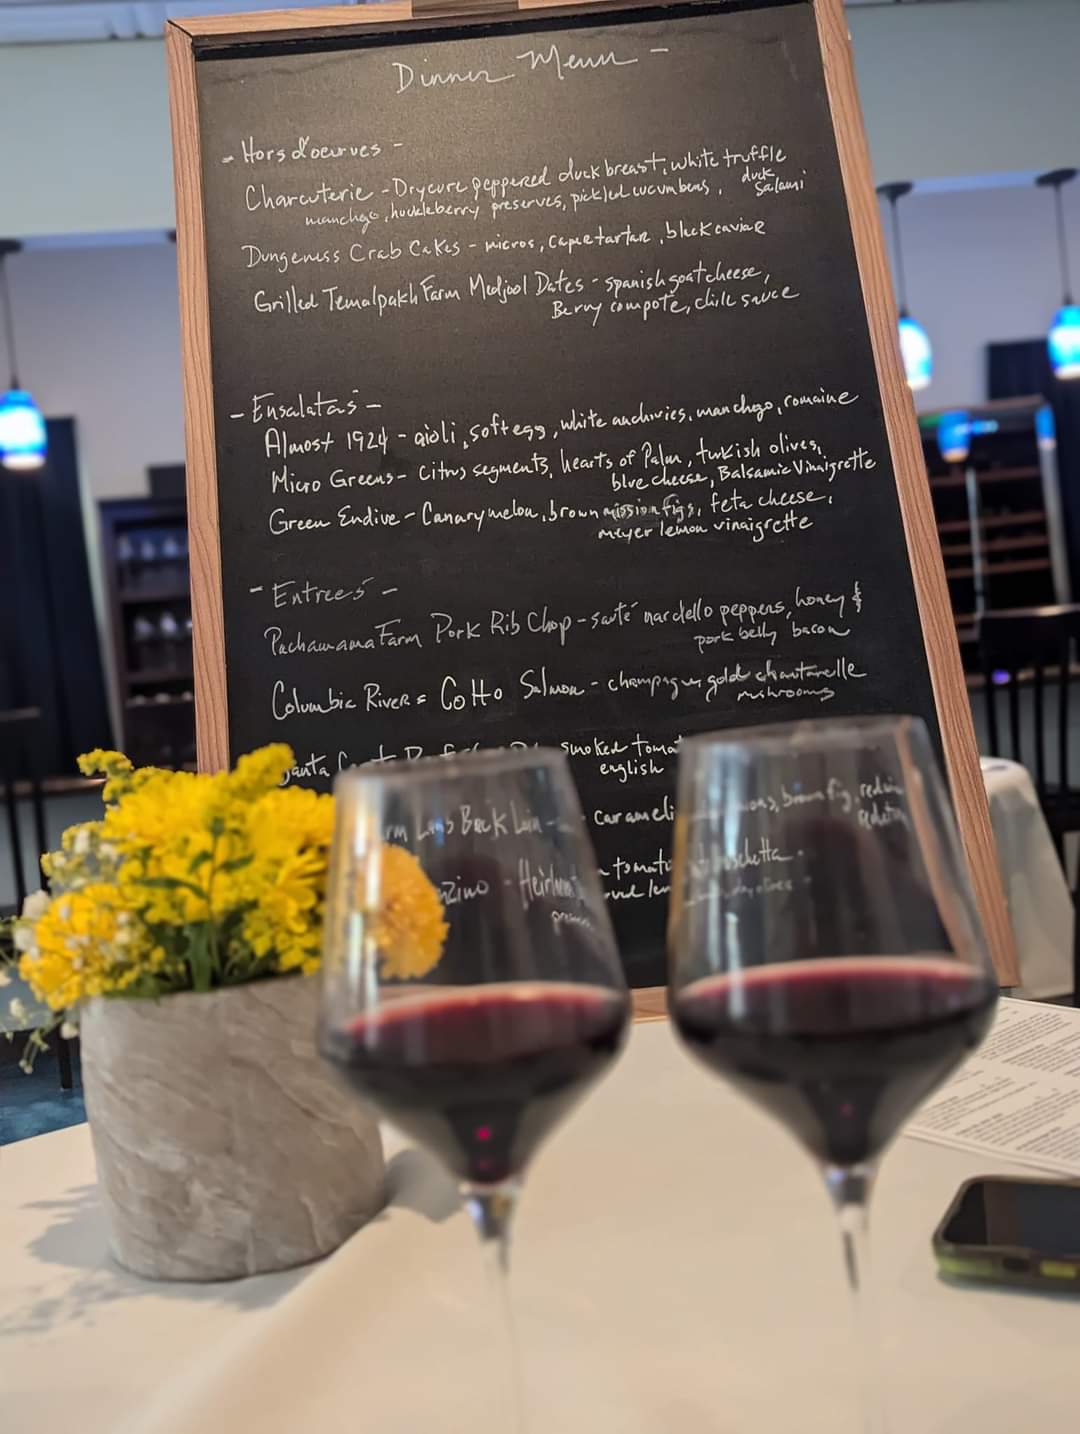 Dinner Menu -
- Hors d'oeurves -
Charcuterie - Drycure peppered duck breast, white truffle
manchego, huckleberry preserves, pickled cucumbers, duck
salami
Dungeness Crab Cakes - micros, caper tartar, black caviar
Grilled Temalpakh Farm Medjool Dates - spanish goat cheese,
Berry compote, chili sauce
- Ensalatas -
Almost 1924 - aioli, soft egg, white anchovies, manchego, romaine
Micro Greens - citrus segments, hearts of Palm, turkish olives,
blue cheese, Balsamic Vinaigrette
Green Endive - Canary melon, brown mission figs, feta cheese,
meyer lemon vinaigrette
- Entrees -
Pachamama Farm Pork Rib Chop - sauté nardello peppers, honey &
pork belly bacon
Columbia River = Coho Salmon - champagne, gold chantarelle
mushrooms
Santa smoked
english
Back Loin - brown fig,
Heirloom